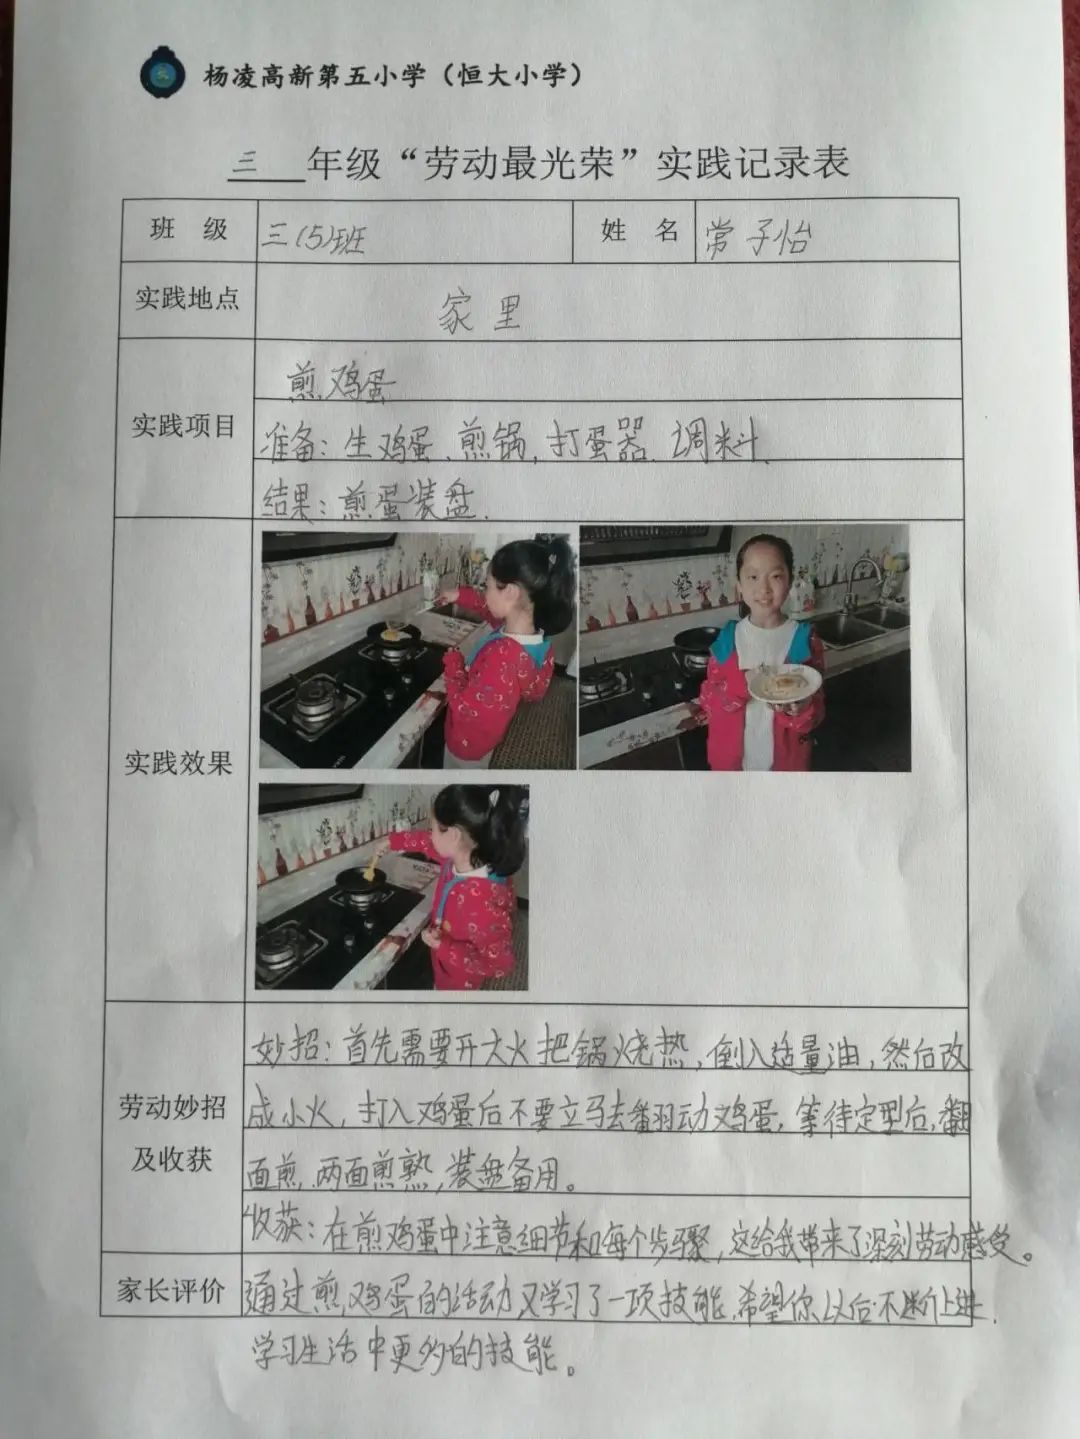 杨凌高新第五小学（恒大小学）
三 年级“劳动最光荣”实践记录表
班 级 三(5)班 姓 名 常子怡
实践地点 家里
实践项目
煎鸡蛋
准备：生鸡蛋、煎锅、打蛋器、调料、
结果：煎蛋装盘.
实践效果
劳动妙招
及收获
妙招：首先需要开大火把锅烧热，倒入适量油，然后改
成小火，打入鸡蛋后不要立马去翻动鸡蛋，等待定型后，翻
面煎，两面煎熟，装盘备用。
收获：在煎鸡蛋中注意细节和每个步骤，这给我带来了深刻劳动感受。
家长评价 通过煎鸡蛋的活动又学习了一项技能，希望你以后不断上进，
学习生活中更多的技能。